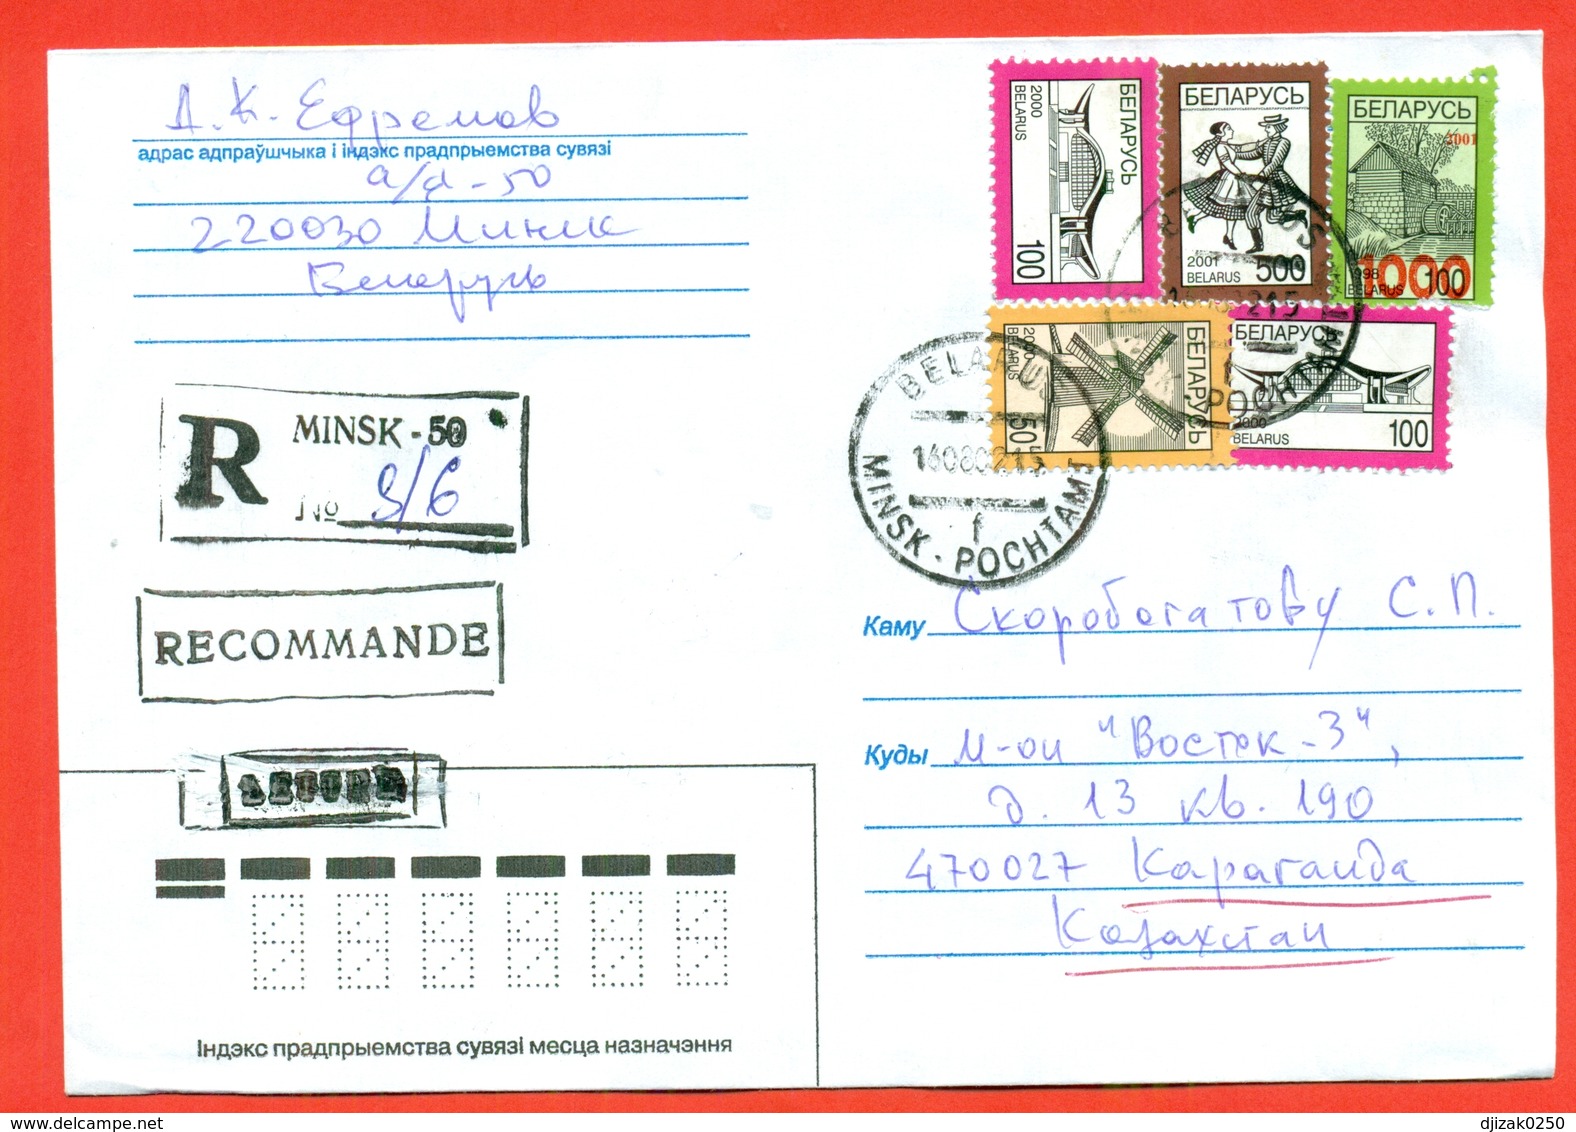 Д. К. Ефремов
адрас адпраўшчыка і індэкс прадпрыемства сувязі
а/я - 50
220030 Минск
Беларусь
БЕЛАРУСЬ
2000
BELARUS
100
БЕЛАРУСЬ
2001
BELARUS
500
БЕЛАРУСЬ
2001
1998
BELARUS
1000
100
БЕЛАРУСЬ
2000
BELARUS
50
БЕЛАРУСЬ
2000
BELARUS
100
BELARU
16080215
f
MINSK - POCHTAMT
R
MINSK - 50
№ 9/6
RECOMMANDE
Каму Скоробогатову С.П.
Куды М-он "Восток-3",
д. 13 кв. 190
470027 Караганда
Казахстан
Індэкс прадпрыемства сувязі месца назначэння
djizak0250